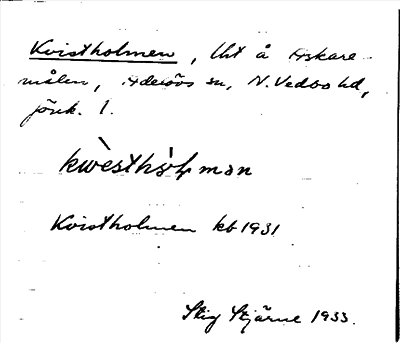 Kvistholmen, lht å Askare-
målen, Adelövs sn, N. Vedbo hd,
jönk. l.
kwèsthɷ̀ɫmən
Kvistholmen kb 1931
Stig Stjärne 1933.